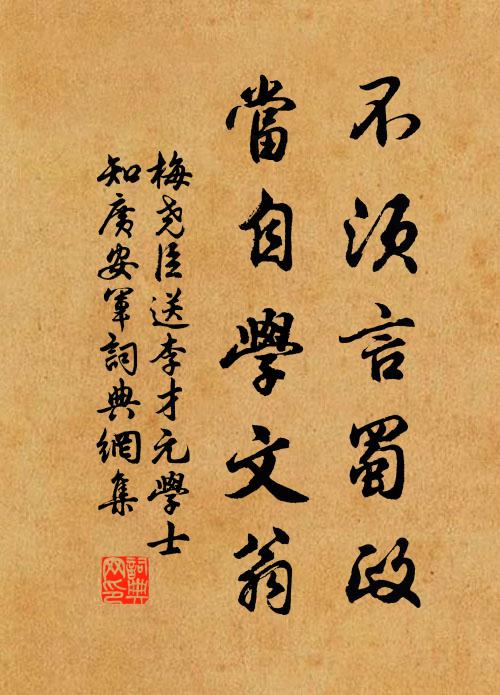 不須言蜀政
當自學文翁
梅堯臣送李才元學士
知廣安軍詞典網集
詞典
网印